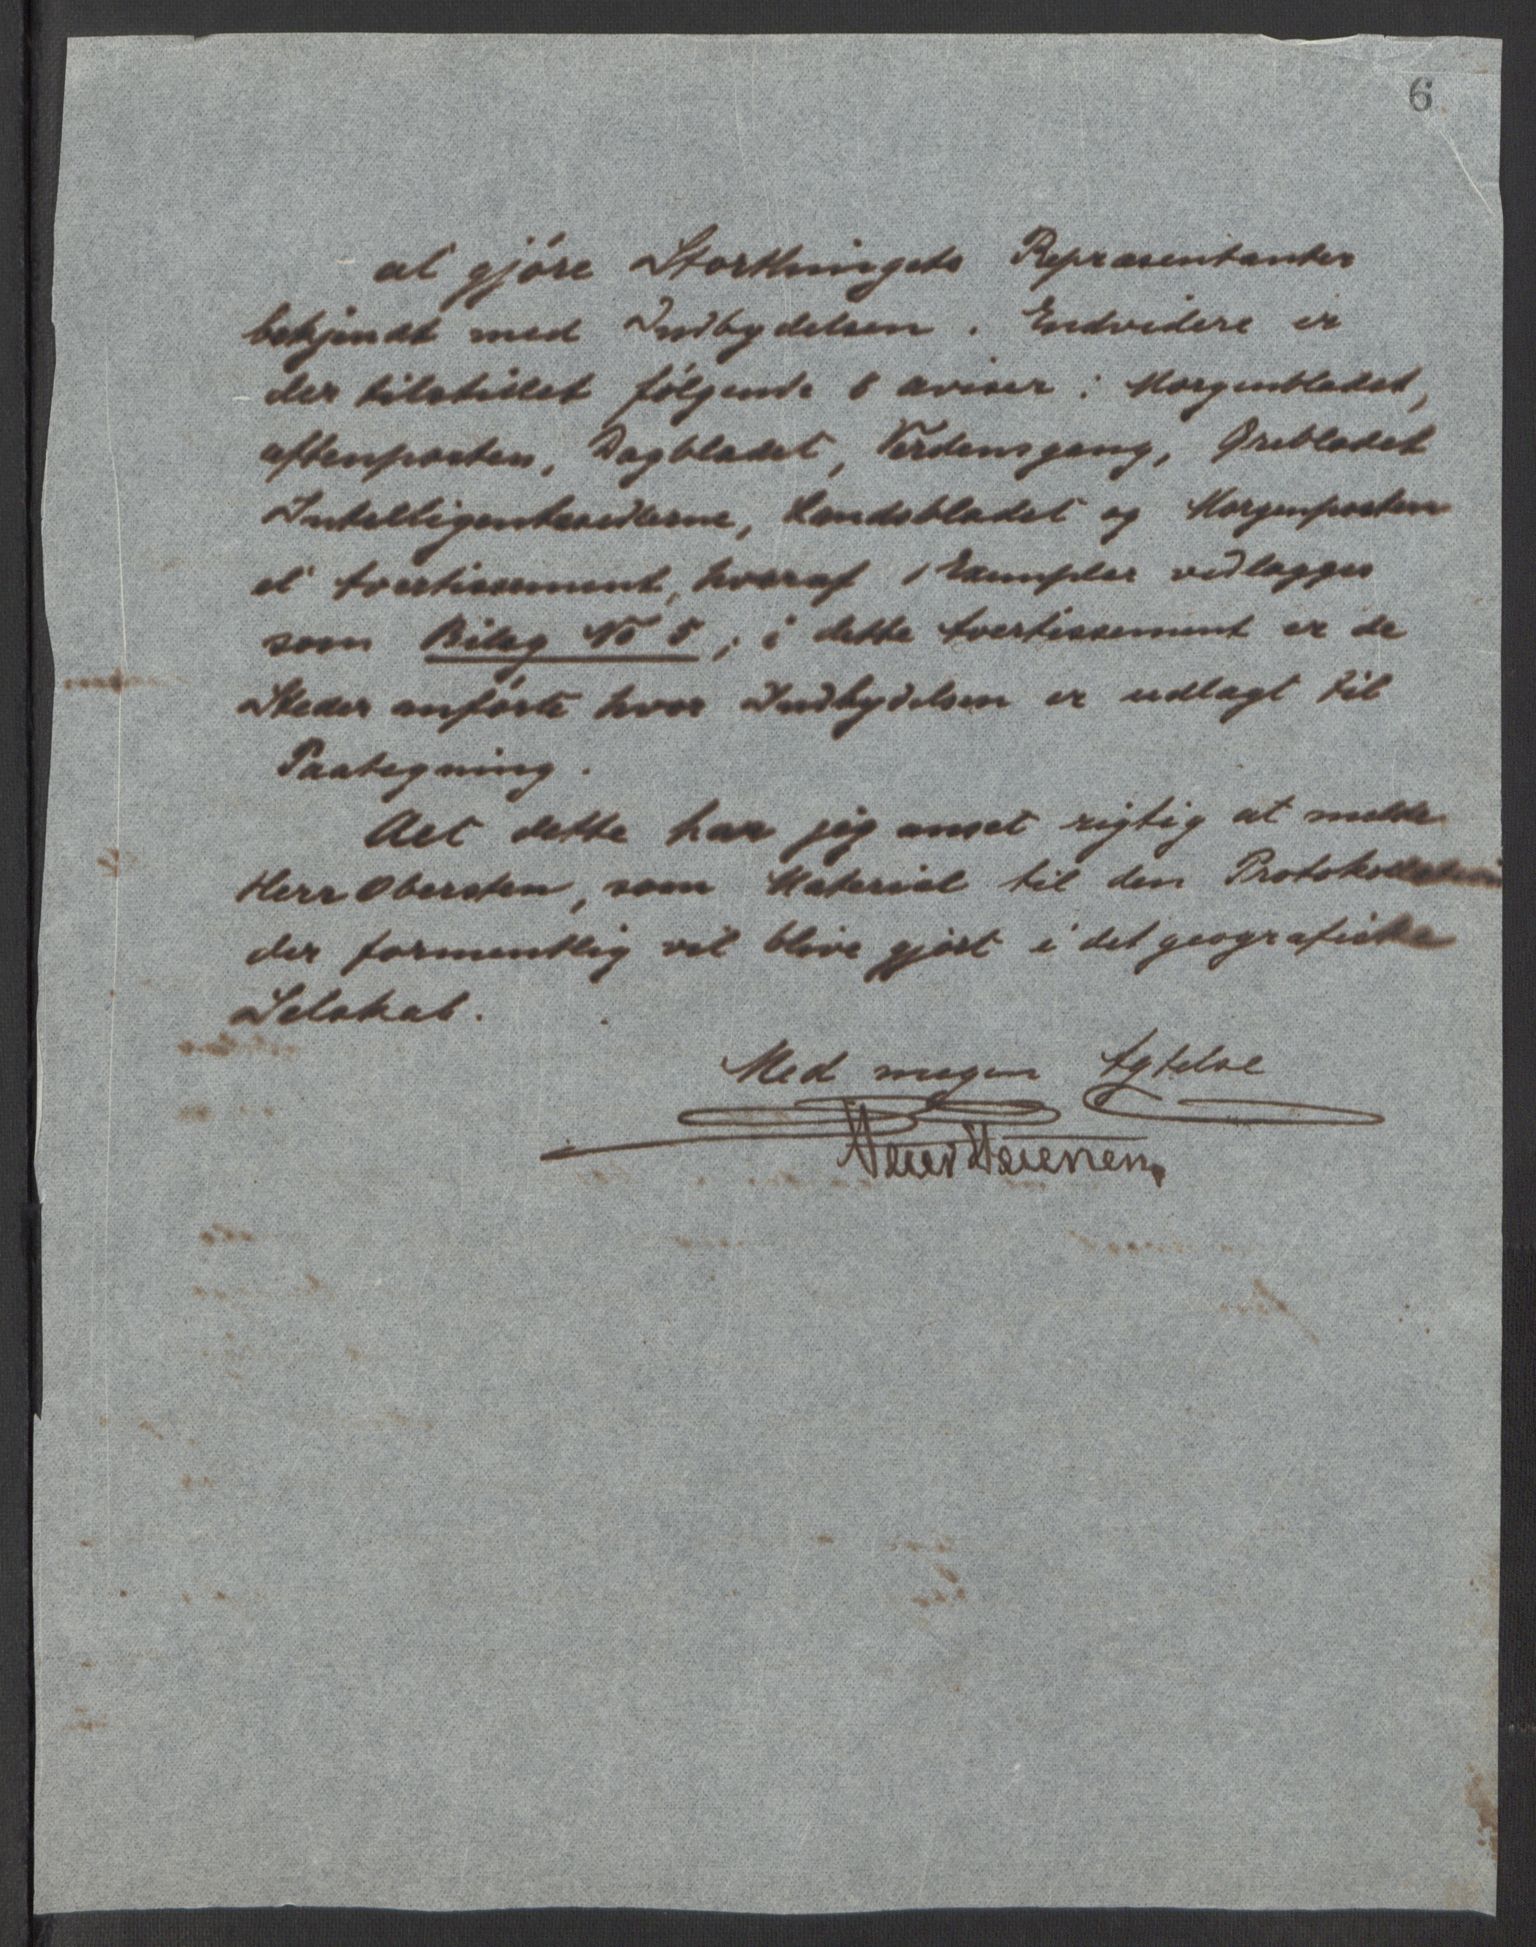 6
at gjöre Storthingets Repræsentanter
bekjendt med Indbydelsen. Endvidere er
der tilstillet følgende 8 aviser: Morgenbladet,
aftenposten, Dagbladet, Verdensgang, Ørebladet
Intelligentssedlerne, Landsbladet og Morgenposten
et Avertissement, hvoraf 1 Exemplar vedlægges
som Bilag No 5; i dette Avertissement er de
Steder anförte hvor Indbydelsen er udlagt til
Paategning.
Alt dette har jeg anset rigtig at melde
Herr Obersten, som Material til den
der formentlig vil blive gjort i det geografiske
Selskab.
Med megen Agtelse